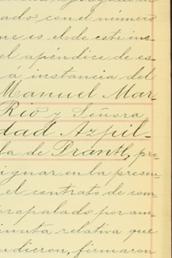 ado con el número
ue es el de este ins
el apéndice de es
á instancia del
Manuel Mar
Rio y Señora
dad Azpil
la de Prantl, pre
ignar en la presen
el contrato de com
tapalabo por am
inuta relativa que
udieron, firmaron